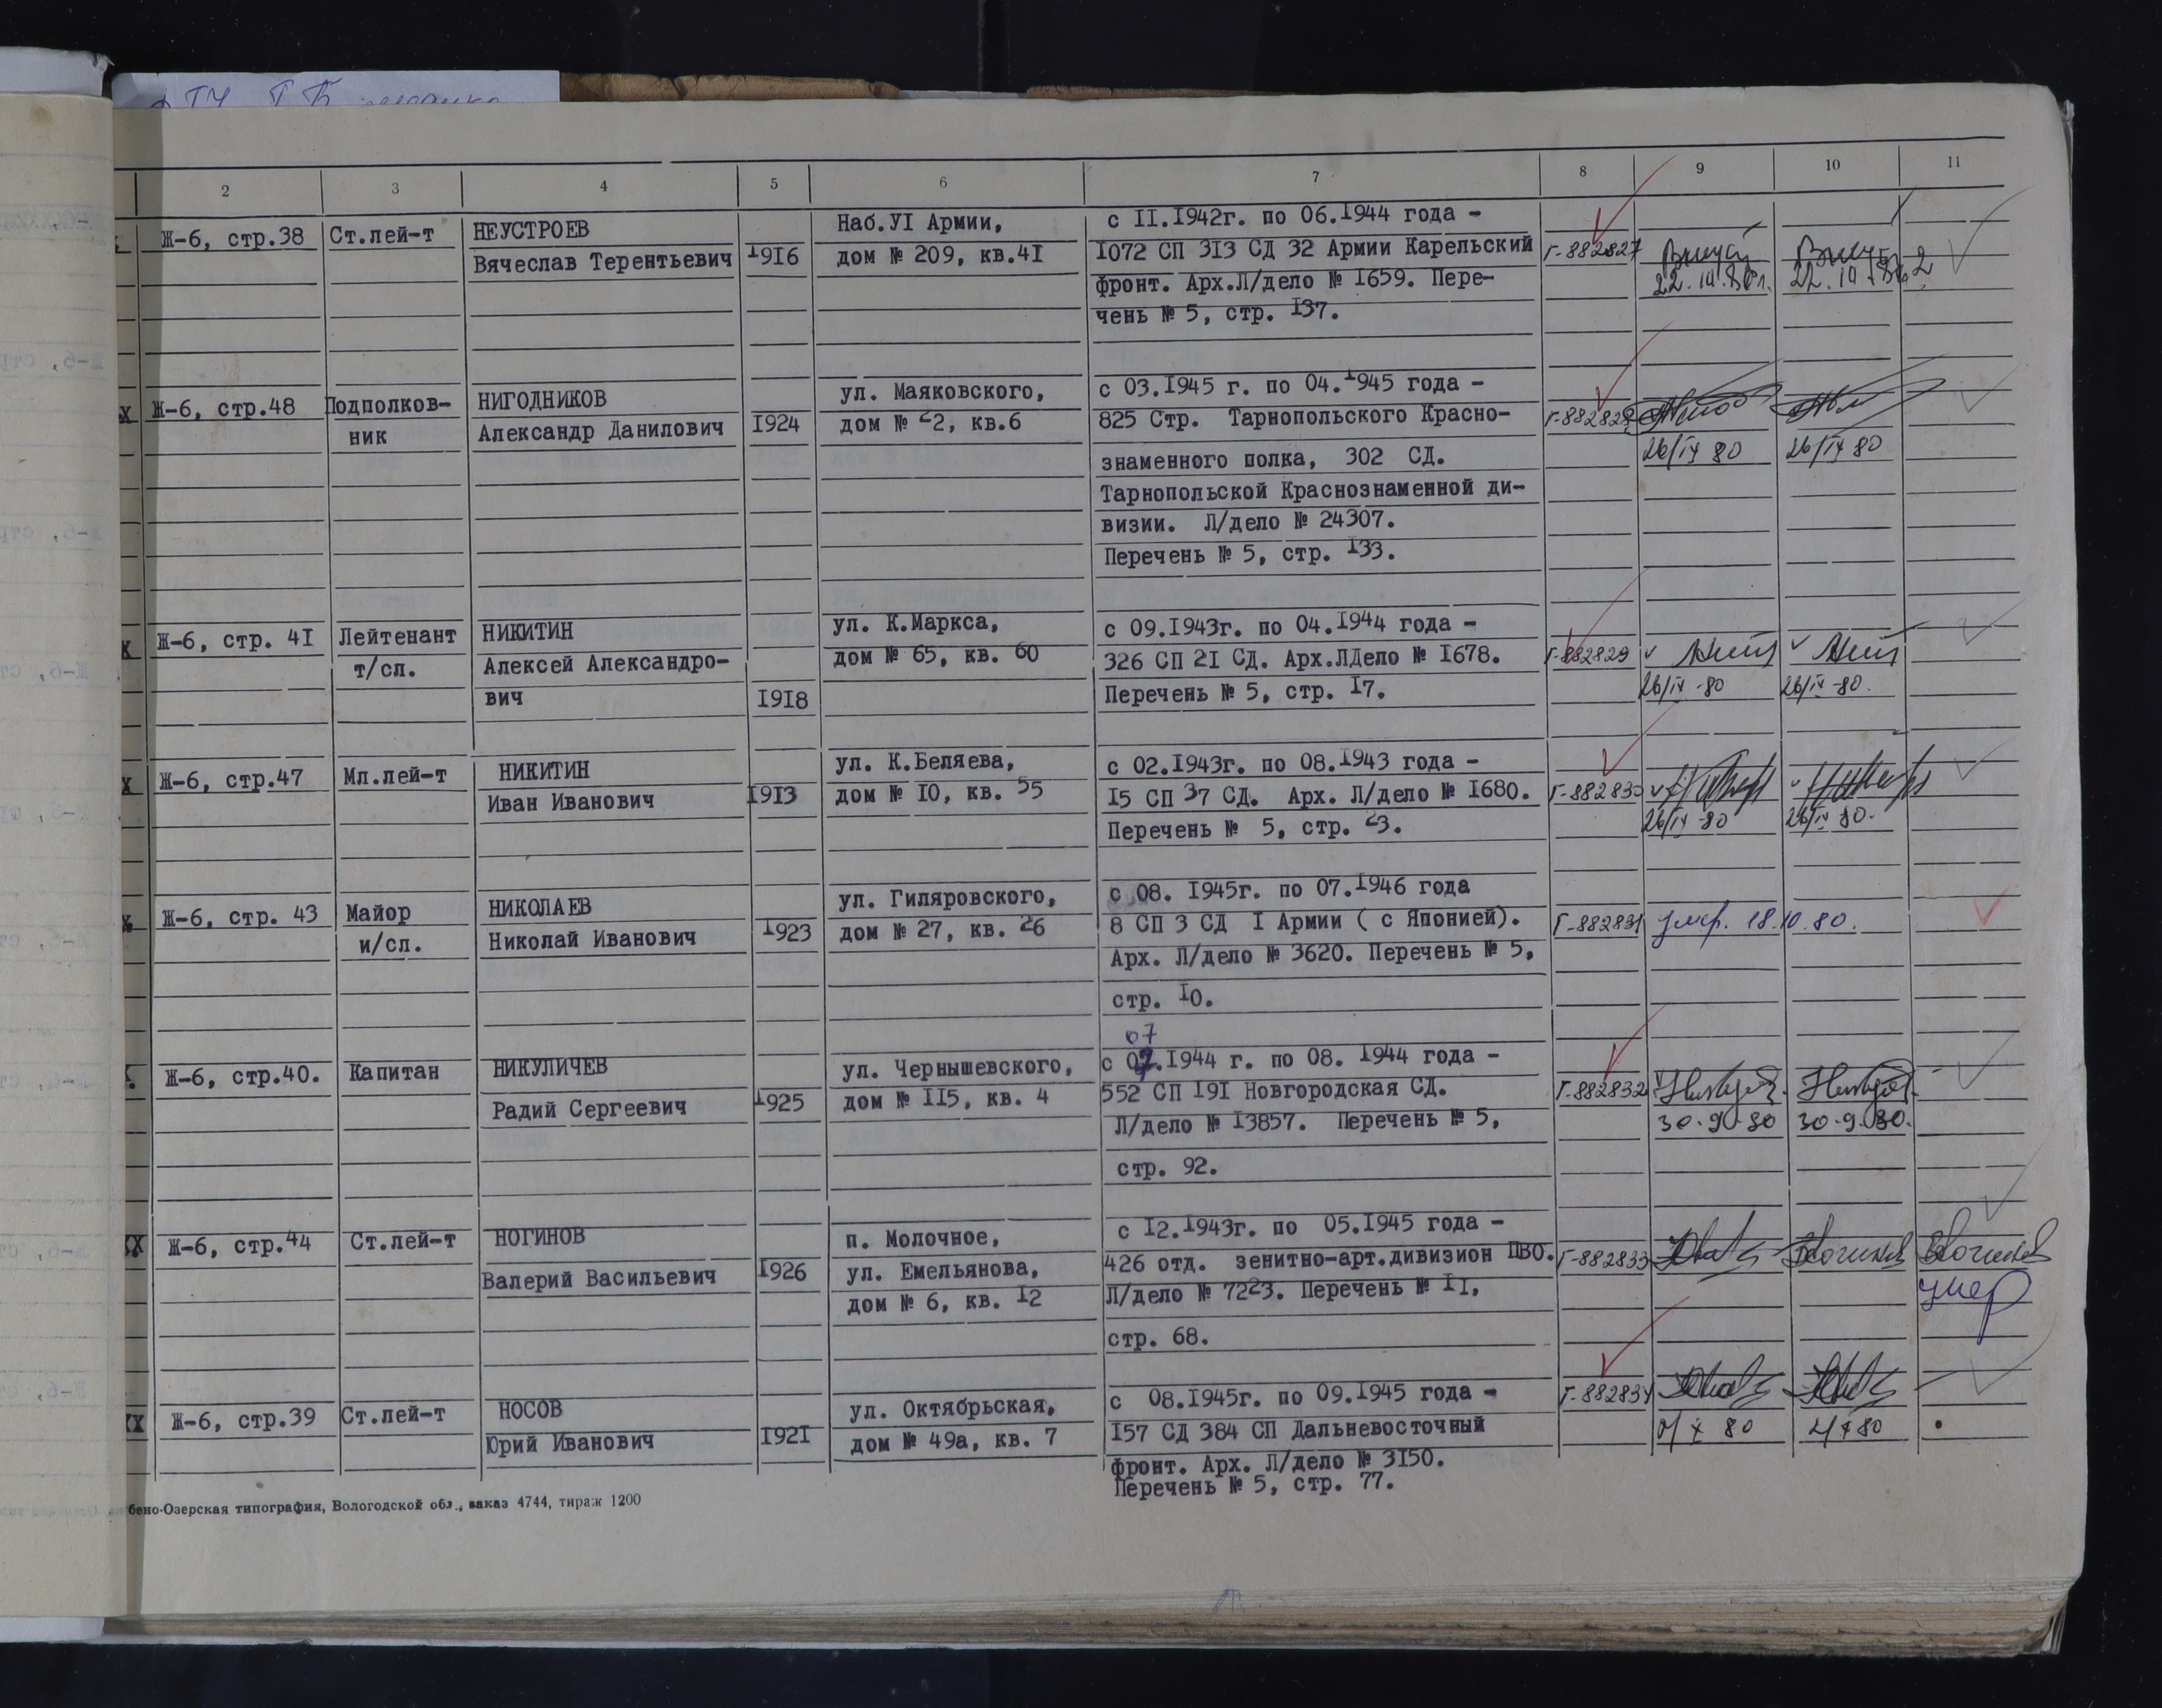 2 3 4 5 6 7 8 9 10 11
Ж-6, стр.38 Ст.лей-т НЕУСТРОЕВ Наб.УI Армии, с II.I942г. по 06.I944 года -
Вячеслав Терентьевич I9I6 дом № 209, кв.4I I072 СП 3I3 СД 32 Армии Карельский Г-882827
фронт. Арх.Л/дело № I659. Пере-
чень № 5, стр. I37.
Ж-6, стр.48 Подполков- НИГОДНИКОВ ул. Маяковского, с 03.I945 г. по 04.I945 года -
ник Александр Данилович I924 дом № 22, кв.6 825 Стр. Тарнопольского Красно- Г-882828
знаменного полка, 302 СД. 26/IX 80 26/IX 80
Тарнопольской Краснознаменной ди-
визии. Л/дело № 24307.
Перечень № 5, стр. I33.
Ж-6, стр. 4I Лейтенант НИКИТИН ул. К.Маркса, с 09.I943г. по 04.I944 года -
т/сл. Алексей Александро- дом № 65, кв. 60 326 СП 2I СД. Арх.ЛДело № I678. Г-882829
вич I9I8 Перечень № 5, стр. I7. 26/IX-80 26/IX-80.
Ж-6, стр.47 Мл.лей-т НИКИТИН ул. К.Беляева, с 02.I943г. по 08.I943 года -
Иван Иванович I9I3 дом № I0, кв. 55 I5 СП 37 СД. Арх. Л/дело № I680. Г-882830
Перечень № 5, стр. 23. 26/IX-80 26/IX 80.
Ж-6, стр. 43 Майор НИКОЛАЕВ ул. Гиляровского, с 08. I945г. по 07.I946 года
и/сл. Николай Иванович I923 дом № 27, кв. 26 8 СП 3 СД I Армии ( с Японией). Г-882831 умер. 18.10.80.
Арх. Л/дело № 3620. Перечень № 5,
стр. I0.
07
Ж-6, стр.40. Капитан НИКУЛИЧЕВ ул. Чернышевского, с 07.I944 г. по 08. I944 года -
Радий Сергеевич I925 дом № II5, кв. 4 552 СП I9I Новгородская СД. Г-882832
Л/дело № I3857. Перечень № 5, 30.9.80 30.9.80.
стр. 92.
Ж-6, стр.44 Ст.лей-т НОГИНОВ п. Молочное, с I2.I943г. по 05.I945 года -
Валерий Васильевич I926 ул. Емельянова, 426 отд. зенитно-арт.дивизион ПВО. Г-882833
дом № 6, кв. I2 Л/дело № 7223. Перечень № II, умер
стр. 68.
Ж-6, стр.39 Ст.лей-т НОСОВ ул. Октябрьская, с 08.I945г. по 09.I945 года - Г-882834
Юрий Иванович I92I дом № 49а, кв. 7 I57 СД 384 СП Дальневосточный
фронт. Арх. Л/дело № 3I50.
Перечень № 5, стр. 77.
бено-Озерская типография, Вологодской обл., заказ 4744, тираж 1200